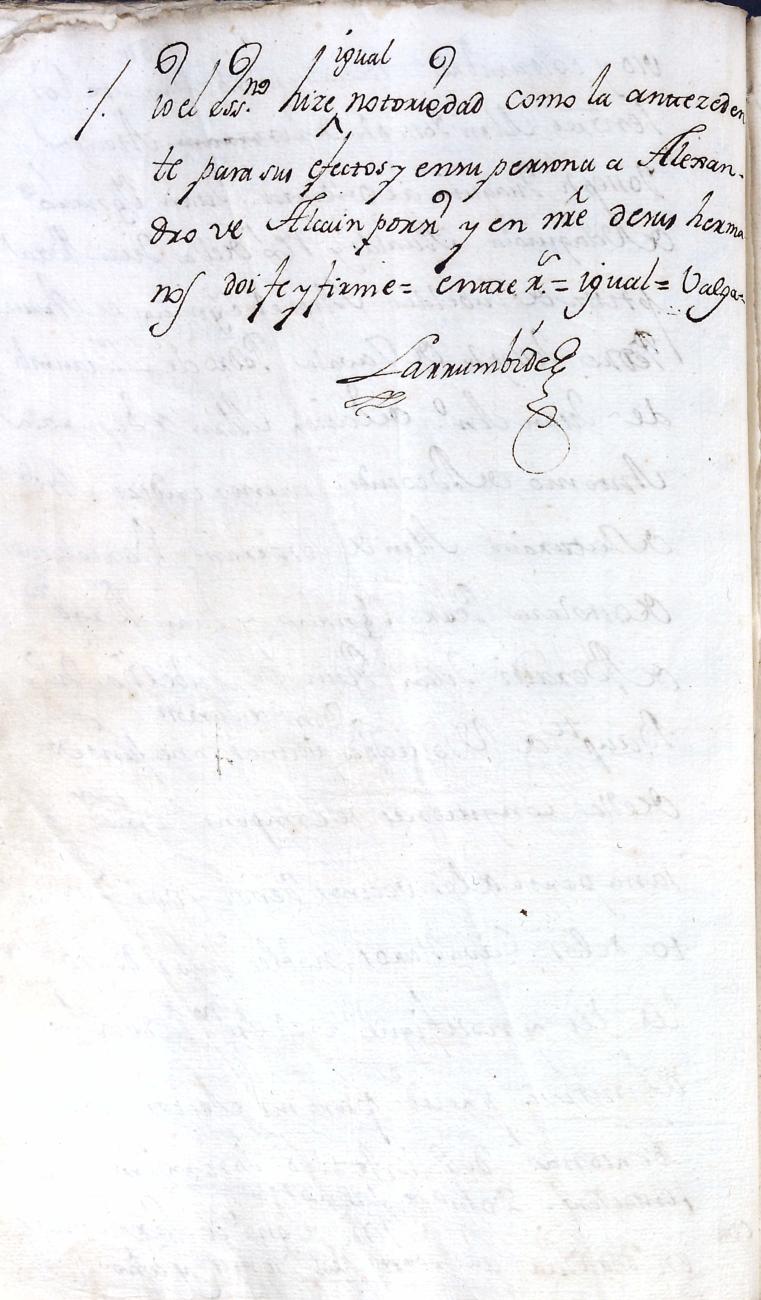 igual
/. io el ess.no hize notoriedad como la anttezeden
te para sus efectos y en su persona a Alexan-
dro de Alcain por si y en nre de sus herma
nos doi fe y firme= enttre rs.= igual= Valga-
Larrumbide